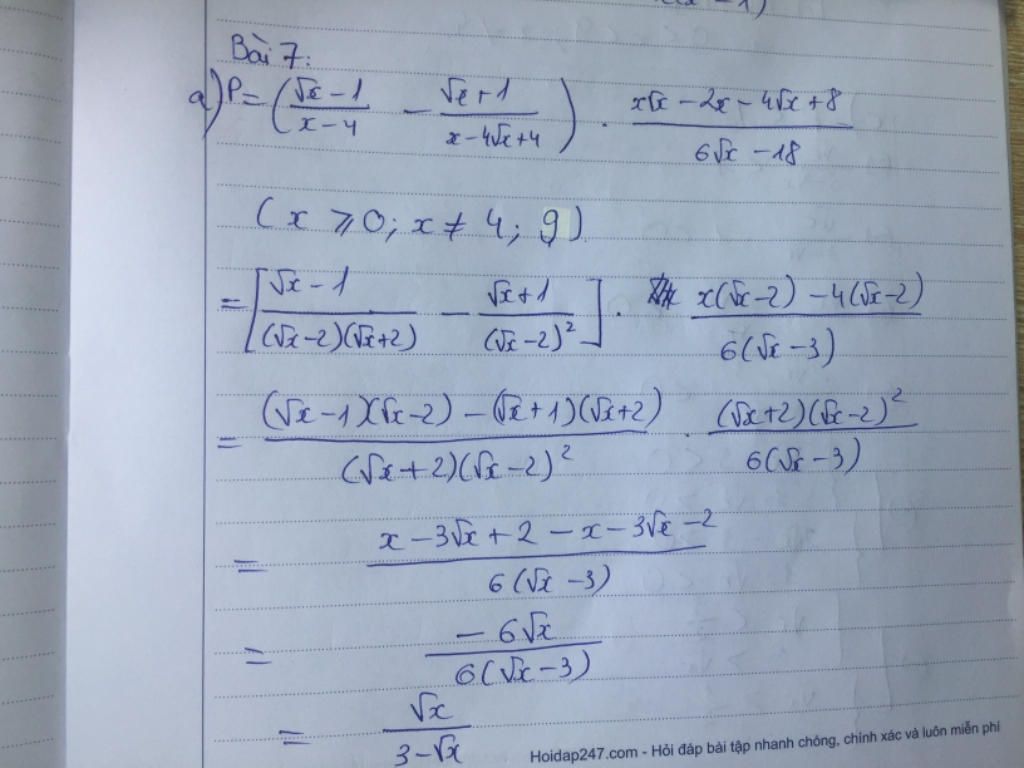 Bài 7:
a) P = ( (√x - 1)/(x - 4) - (√x + 1)/(x - 4√x + 4) ) . (x√x - 2x - 4√x + 8)/(6√x - 18)
( x ⩾ 0; x ≠ 4; 9 )
= [ (√x - 1)/((√x - 2)(√x + 2)) - (√x + 1)/((√x - 2)²) ] . (x(√x - 2) - 4(√x - 2))/(6(√x - 3))
= ((√x - 1)(√x - 2) - (√x + 1)(√x + 2))/((√x + 2)(√x - 2)²) . ((√x + 2)(√x - 2)²)/(6(√x - 3))
= (x - 3√x + 2 - x - 3√x - 2)/(6(√x - 3))
= (- 6√x)/(6(√x - 3))
= (√x)/(3 - √x)
Hoidap247.com - Hỏi đáp bài tập nhanh chóng, chính xác và luôn miễn phí